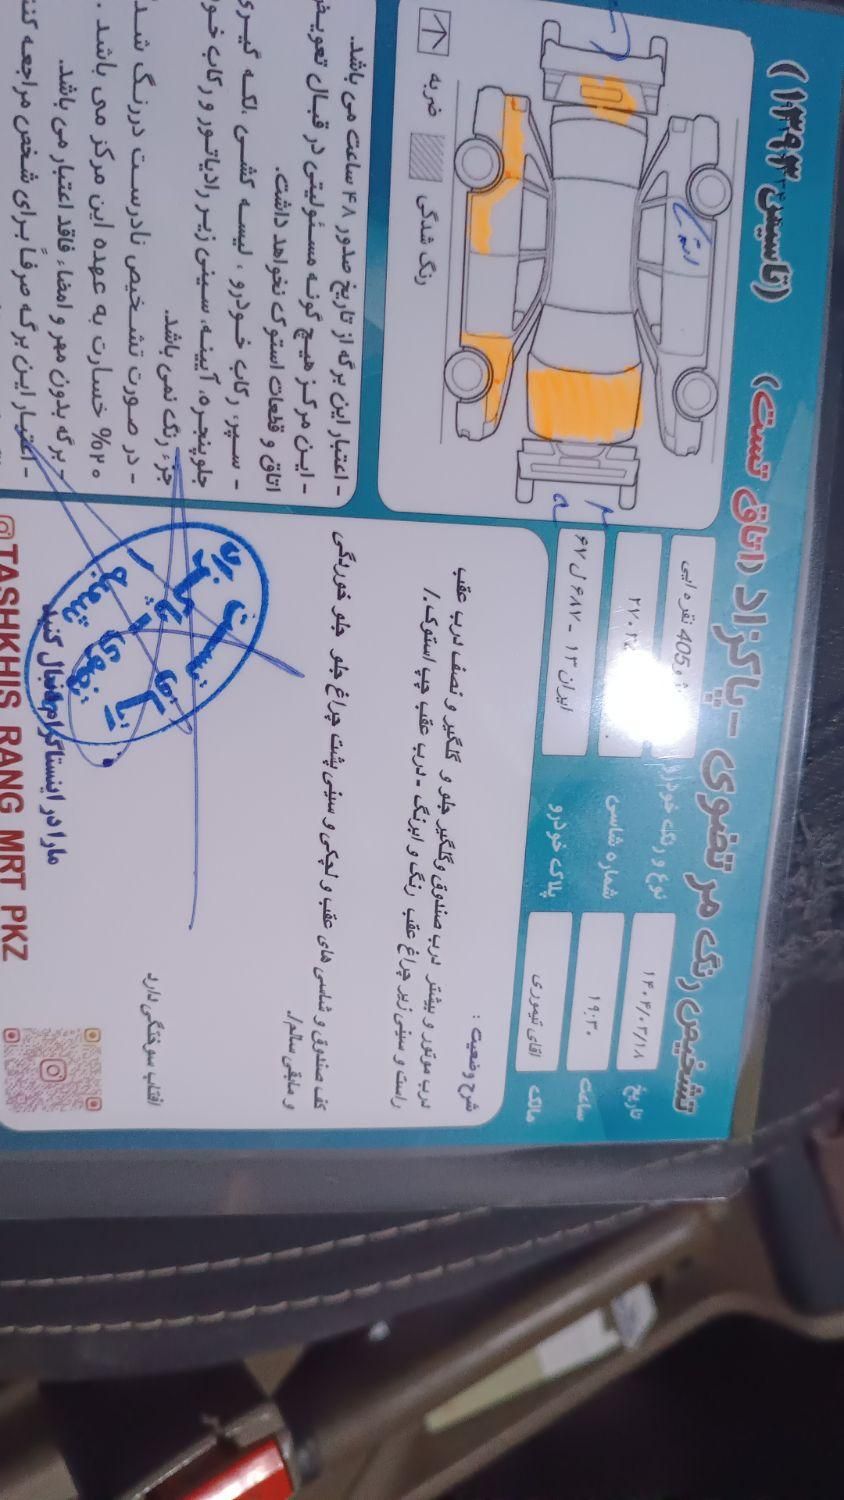 تشخیص رنگ مرتضوی - پاکزاد (اتاق تست) (تاسیس ۱۳۹۳)
تاریخ ۱۴۰۴/۰۲/۱۸
ساعت ۱۹:۳۰
مالک اقای تیموری
نوع و رنگ خودرو 405 نقره ایی
شماره شاسی
پلاک خودرو ایران ۱۳ - ۶۸۷ ل ۶۷
استوک
ضربه
رنگ شدگی
شرح وضعیت :
درب موتور و بیشتر درب صندوق وگلگیر جلو و گلگیر و نصف درب عقب
راست و سینی زیر چراغ عقب رنگ و ابرنگ - درب عقب چپ استوک./
کف صندوق و شاسی های عقب و لچکی و سینی پشت چراغ جلو جلو خوردگی
و مابقی سالم./
افتاب سوختگی دارد
- اعتبار این برگه از تاریخ صدور ۴۸ ساعت می باشد.
- این مرکز هیچ گونه مسئولیتی در قبال تعویض
اتاق و قطعات استوک نخواهد داشت.
- سپر، رکاب خودرو ، لیسه کشی ،لکه گیری
جلوپنجره، آیینه، سینی زیر رادیاتور و رکاب
جزء رنگ نمی باشد.
- در صورت تشخیص نادرست دررنگ
۲۰% خسارت به عهده این مرکز می باشد .
- برگه بدون مهر و امضاء فاقد اعتبار می باشد.
- اعتبار این برگه صرفاً برای شخص مراجعه
مارا در اینستاگرام دنبال کنید
TASHKHIS RANG MRT PKZ